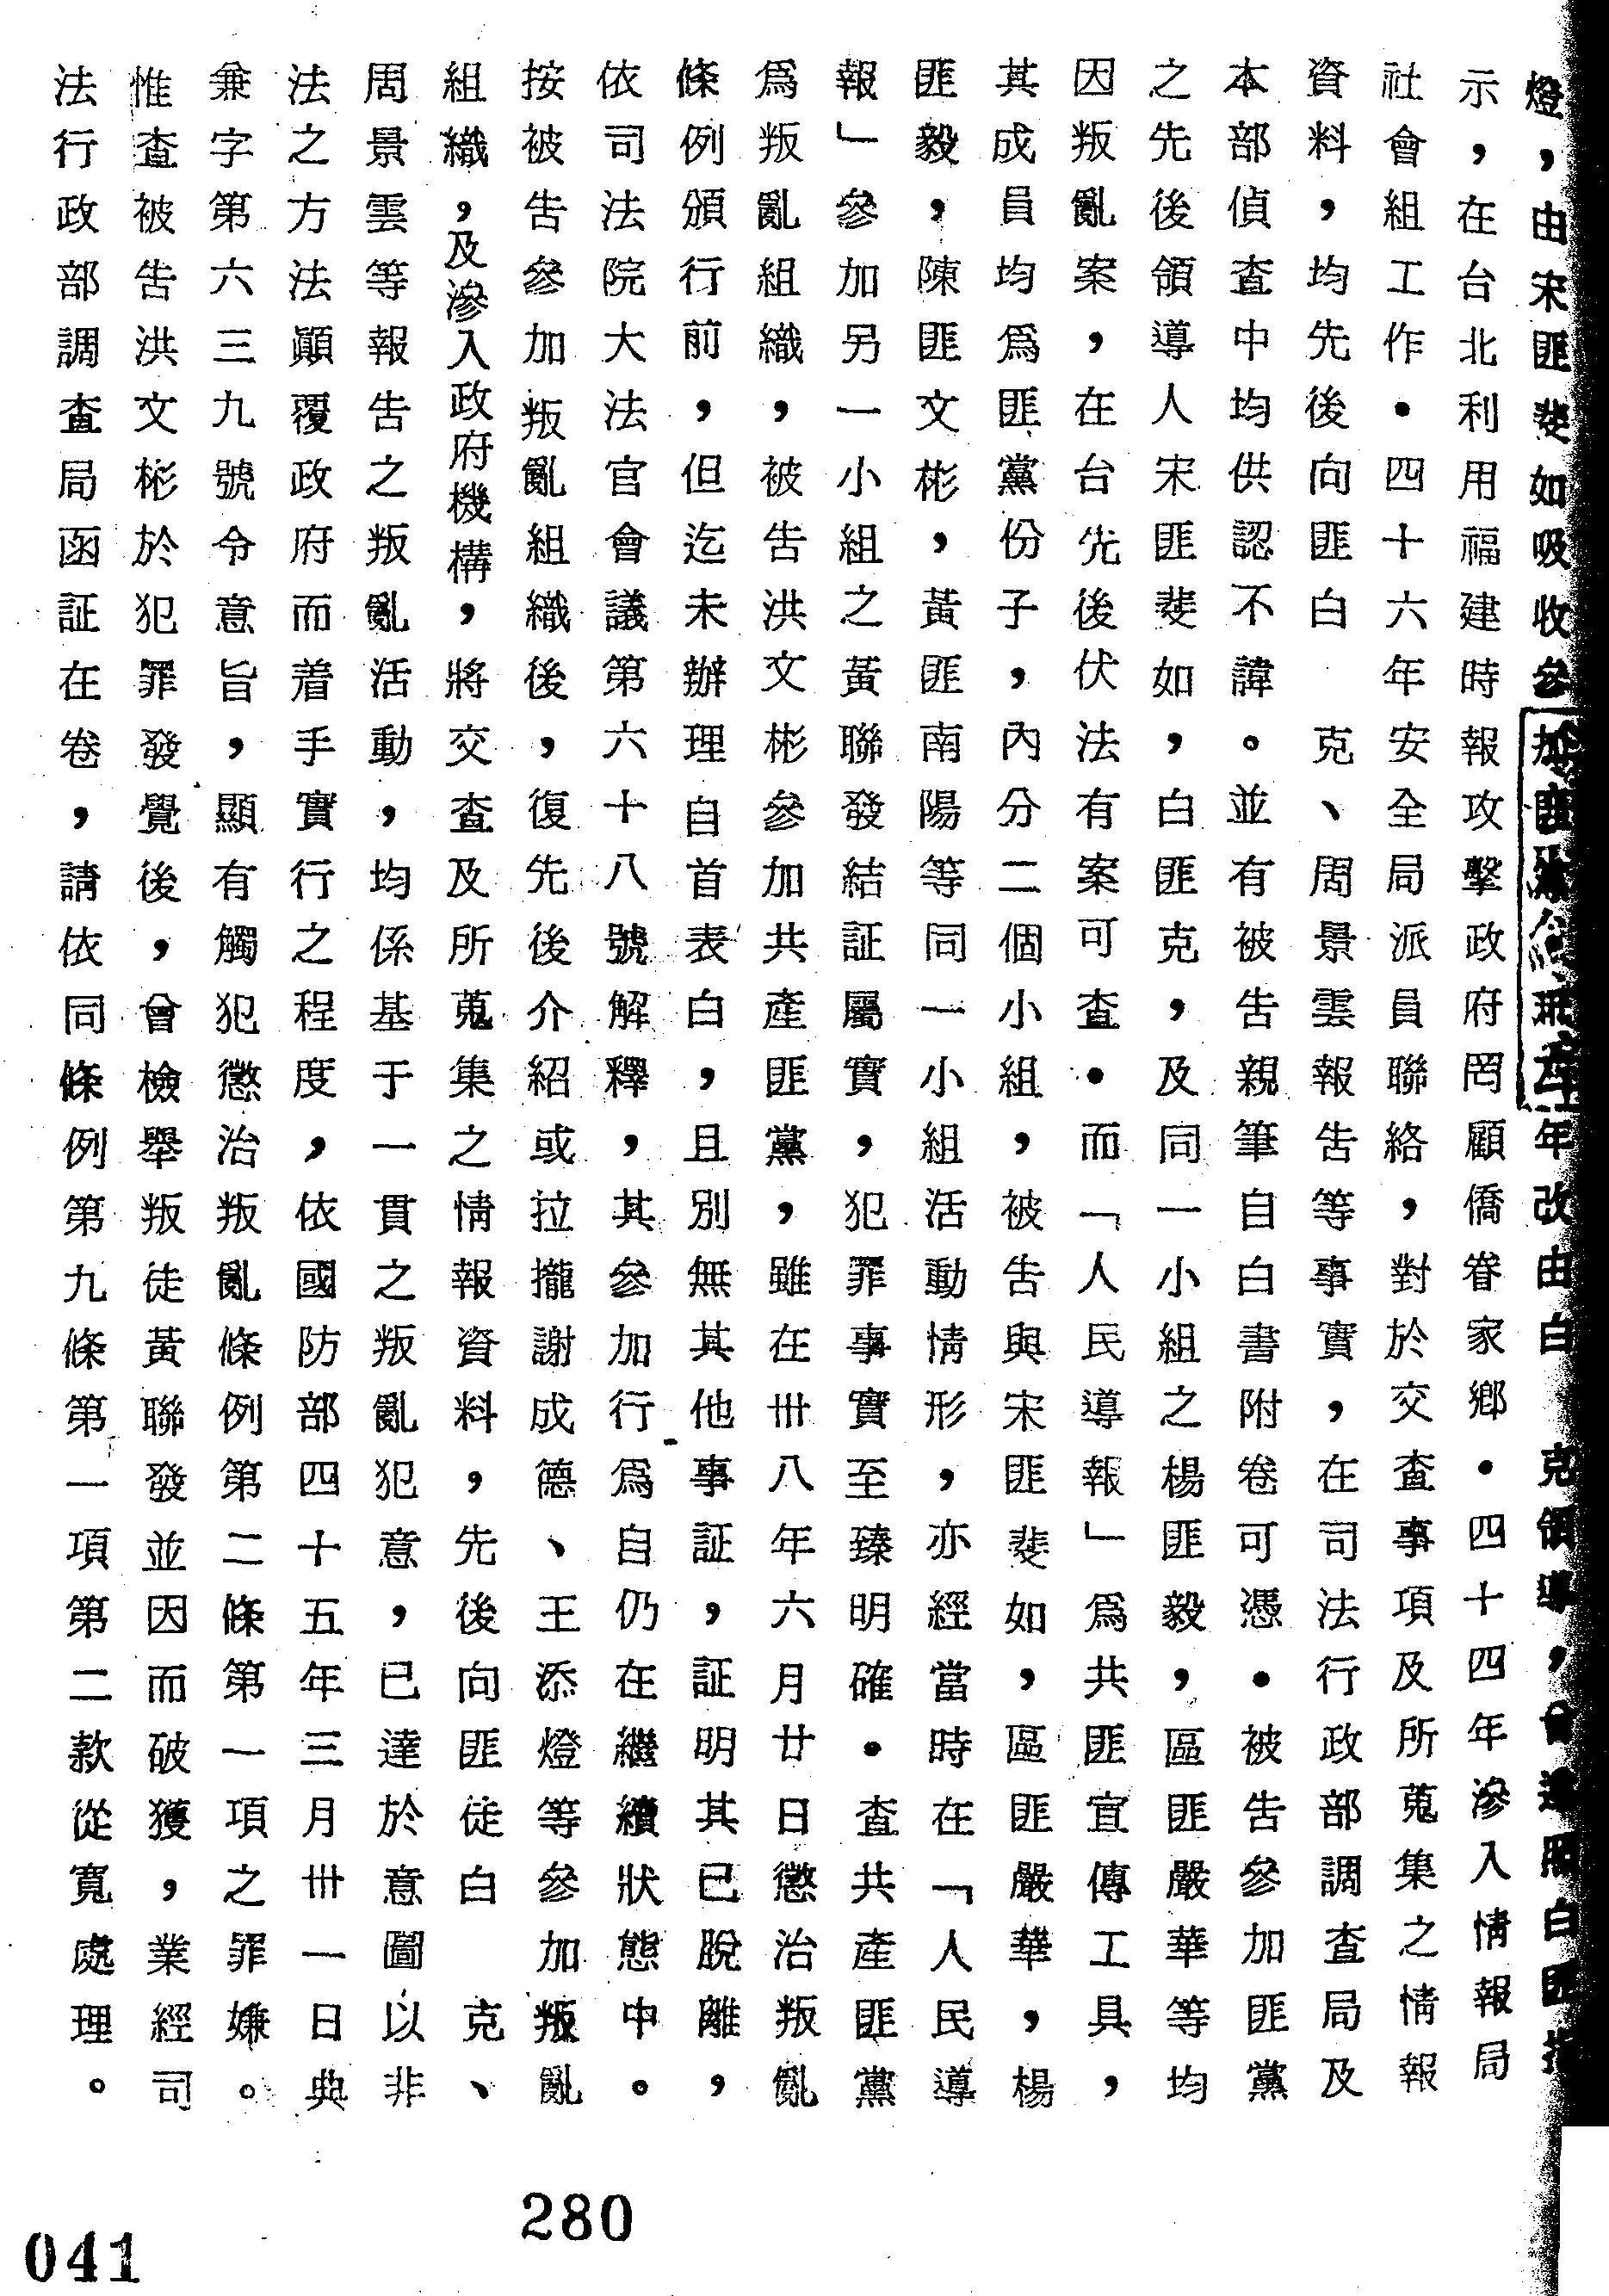 燈，由宋匪斐如吸收參加匪黨年改由白　克領導，白匪指
示，在台北利用福建時報攻擊政府罔顧僑眷家鄉．四十四年滲入情報局
社會組工作．四十六年安全局派員聯絡，對於交查事項及所蒐集之情報
資料，均先後向匪白　克、周景雲報告等事實，在司法行政部調查局及
本部偵查中均供認不諱。並有被告親筆自白書附卷可憑．被告參加匪黨
之先後領導人宋匪斐如，白匪克，及同一小組之楊匪毅，區匪嚴華等均
因叛亂案，在台先後伏法有案可查．而「人民導報」為共匪宣傳工具，
其成員均為匪黨份子，內分二個小組，被告與宋匪斐如，區匪嚴華，楊
匪毅，陳匪文彬，黃匪南陽等同一小組活動情形，亦經當時在「人民導
報」參加另一小組之黃聯發結証屬實，犯罪事實至臻明確．查共產匪黨
為叛亂組織，被告洪文彬參加共產匪黨，雖在卅八年六月廿日懲治叛亂
條例頒行前，但迄未辦理自首表白，且別無其他事証，証明其已脫離，
依司法院大法官會議第六十八號解釋，其參加行為自仍在繼續狀態中。
按被告參加叛亂組織後，復先後介紹或拉攏謝成德、王添燈等參加叛亂
組織，及滲入政府機構，將交查及所蒐集之情報資料，先後向匪徒白　克、
周景雲等報告之叛亂活動，均係基于一貫之叛亂犯意，已達於意圖以非
法之方法顛覆政府而着手實行之程度，依國防部四十五年三月卅一日典
兼字第六三九號令意旨，顯有觸犯懲治叛亂條例第二條第一項之罪嫌。
惟查被告洪文彬於犯罪發覺後，曾檢舉叛徒黃聯發並因而破獲，業經司
法行政部調查局函証在卷，請依同條例第九條第一項第二款從寬處理。
280
041